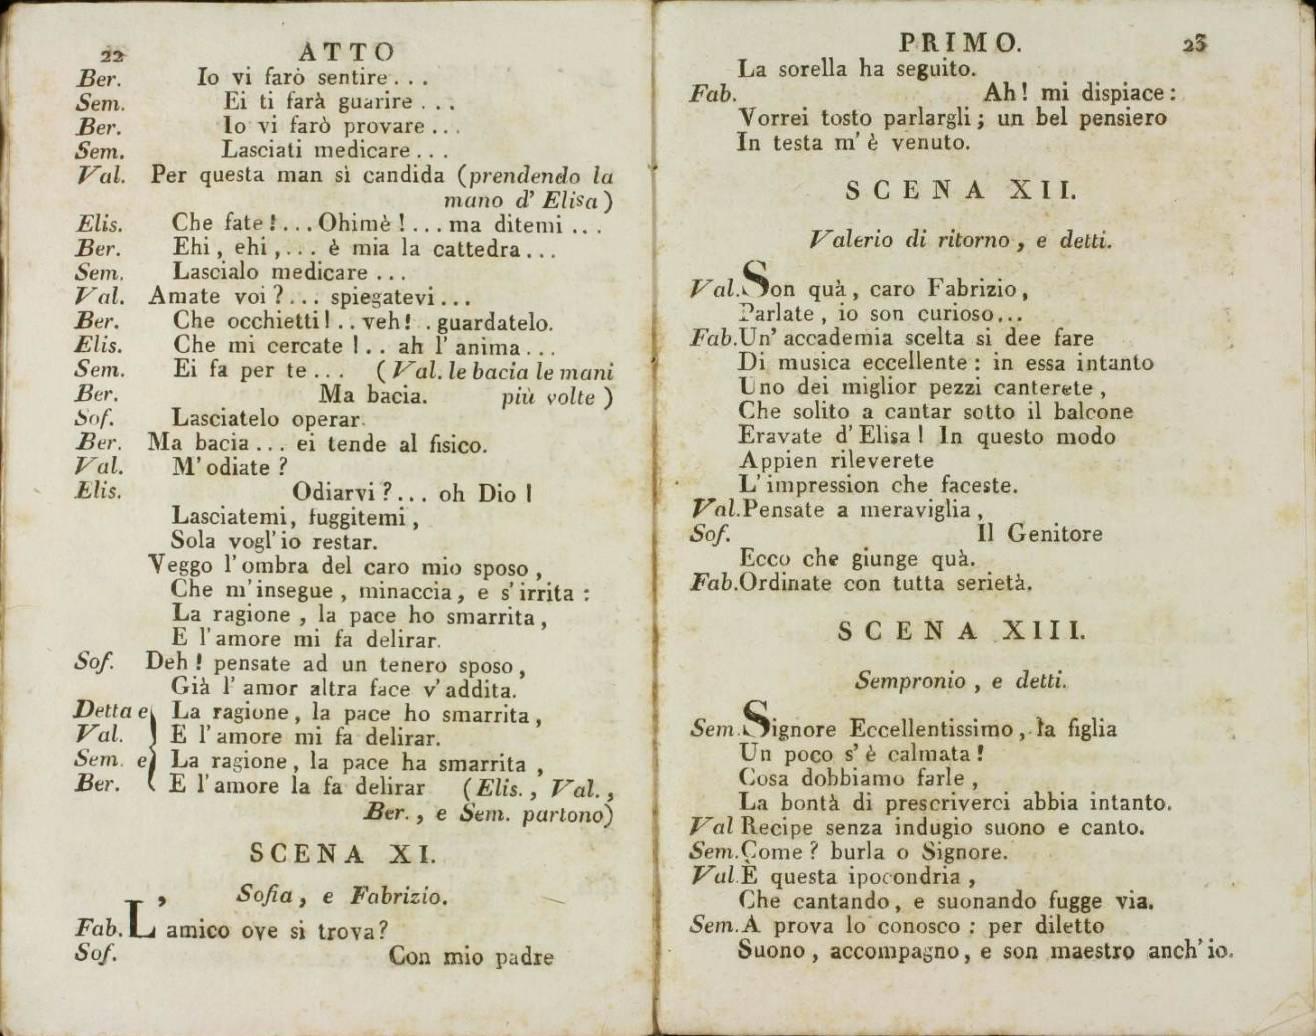 22 ATTO
Ber. Io vi farò sentire . . .
Sem. Ei ti farà guarire . . .
Ber. Io vi farò provare . . .
Sem. Lasciati medicare . . .
Val. Per questa man sì candida (prendendo la
mano d' Elisa)
Elis. Che fate ! . . . Ohimè ! . . . ma ditemi . . .
Ber. Ehi , ehi , . . . è mia la cattedra . . .
Sem. Lascialo medicare . . .
Val. Amate voi ? . . . spiegatevi . . .
Ber. Che occhietti ! . . veh ! . guardatelo.
Elis. Che mi cercate ! . . ah l' anima . . .
Sem. Ei fa per te . . . ( Val. le bacia le mani
Ber. Ma bacia. più volte )
Sof. Lasciatelo operar.
Ber. Ma bacia . . . ei tende al fisico.
Val. M' odiate ?
Elis. Odiarvi ? . . . oh Dio !
Lasciatemi, fuggitemi ,
Sola vogl' io restar.
Veggo l' ombra del caro mio sposo ,
Che m' insegue , minaccia, e s' irrita :
La ragione , la pace ho smarrita ,
E l' amore mi fa delirar.
Sof. Deh ! pensate ad un tenero sposo ,
Già l' amor altra face v' addita.
Detta e La ragione , la pace ho smarrita ,
Val. E l' amore mi fa delirar.
Sem. e La ragione , la pace ha smarrita ,
Ber. E l' amore la fa delirar (Elis. , Val. ,
Ber. , e Sem. partono)
SCENA XI.
Sofia , e Fabrizio.
Fab. L' amico ove si trova ?
Sof. Con mio padre
PRIMO. 23
La sorella ha seguito.
Fab. Ah ! mi dispiace :
Vorrei tosto parlargli ; un bel pensiero
In testa m' è venuto.
SCENA XII.
Valerio di ritorno , e detti.
Val. Son quà , caro Fabrizio ,
Parlate , io son curioso . . .
Fab. Un' accademia scelta si dee fare
Di musica eccellente : in essa intanto
Uno dei miglior pezzi canterete ,
Che solito a cantar sotto il balcone
Eravate d' Elisa ! In questo modo
Appien rileverete
L' impression che faceste.
Val. Pensate a meraviglia ,
Sof. Il Genitore
Ecco che giunge quà.
Fab. Ordinate con tutta serietà.
SCENA XIII.
Sempronio , e detti.
Sem. Signore Eccellentissimo , la figlia
Un poco s' è calmata !
Cosa dobbiamo farle ,
La bontà di prescriverci abbia intanto.
Val Recipe senza indugio suono e canto.
Sem. Come ? burla o Signore.
Val. È questa ipocondria ,
Che cantando , e suonando fugge via.
Sem. A prova lo conosco : per diletto
Suono , accompagno , e son maestro anch' io.